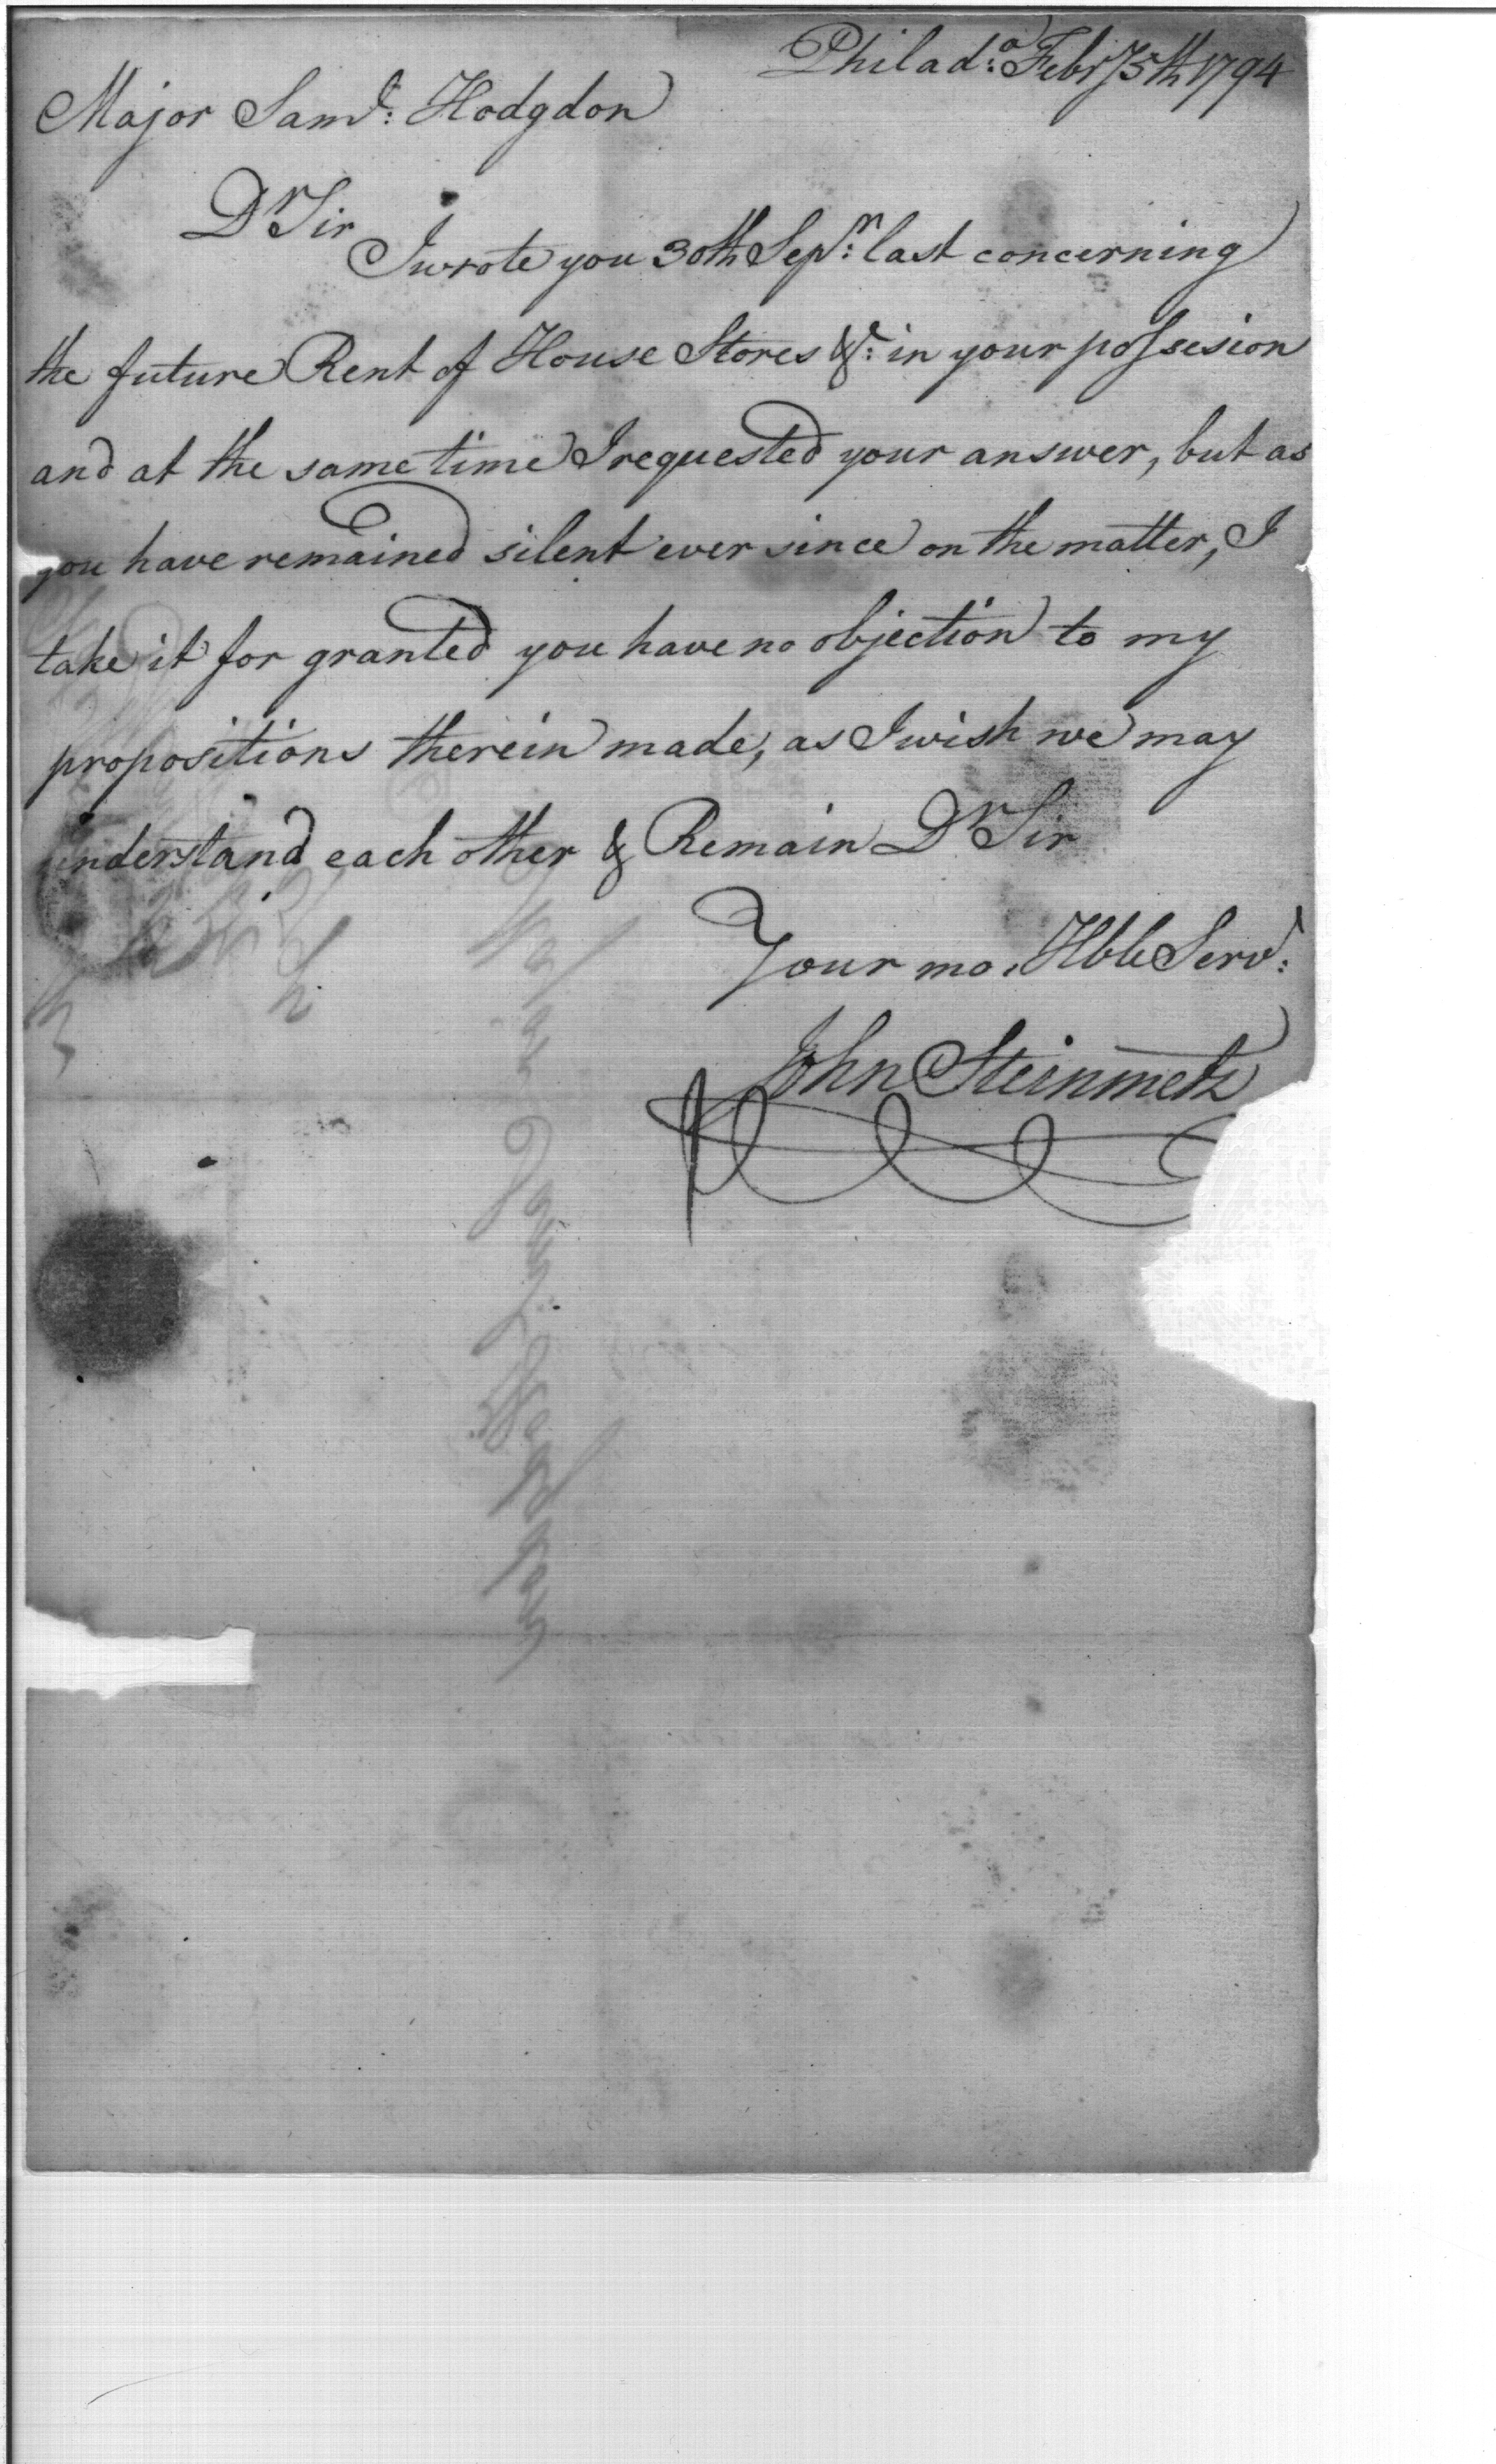 Philad:ª Febr'y 5th 1794
Major Saml: Hodgdon
Dr Sir
I wrote you 30th Sepr: last concerning
the future Rent of House Stores &c: in your possesion
and at the same time I requested your answer, but as
you have remained silent ever since on the matter, I
take it for granted you have no objection to my
propositions therein made, as I wish we may
understand each other & Remain Dr Sir
Your mo. Hble Servt:
John Steinmetz